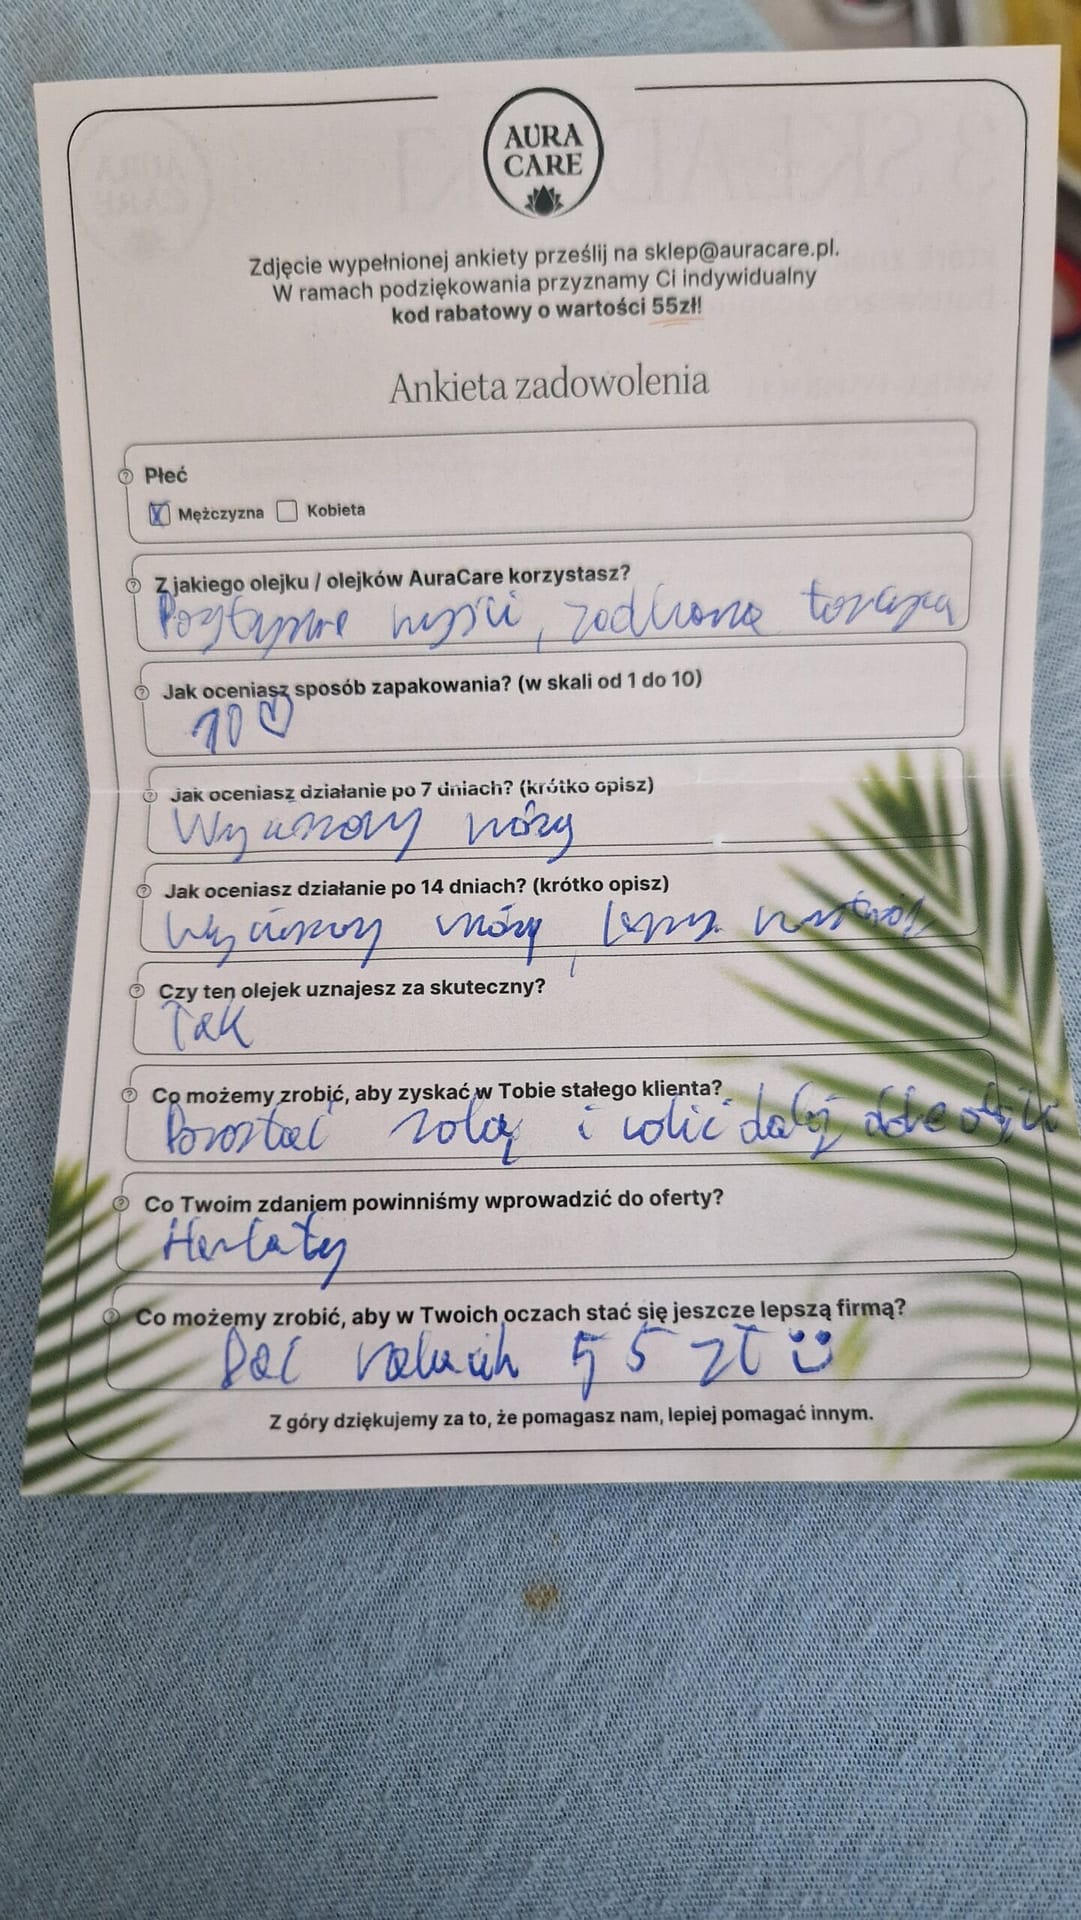 AURA
CARE
Zdjęcie wypełnionej ankiety prześlij na sklep@auracare.pl.
W ramach podziękowania przyznamy Ci indywidualny
kod rabatowy o wartości 55zł!
Ankieta zadowolenia
Płeć
X Mężczyzna Kobieta
Z jakiego olejku / olejków AuraCare korzystasz?
Pozytywne myśli,
Jak oceniasz sposób zapakowania? (w skali od 1 do 10)
10 ♡
Jak oceniasz działanie po 7 dniach? (krótko opisz)
Jak oceniasz działanie po 14 dniach? (krótko opisz)
Czy ten olejek uznajesz za skuteczny?
Tak
Co możemy zrobić, aby zyskać w Tobie stałego klienta?
Pozostać sobą i robić dalej dobre olejki
Co Twoim zdaniem powinniśmy wprowadzić do oferty?
Herbaty
Co możemy zrobić, aby w Twoich oczach stać się jeszcze lepszą firmą?
Dać 55 zł
Z góry dziękujemy za to, że pomagasz nam, lepiej pomagać innym.